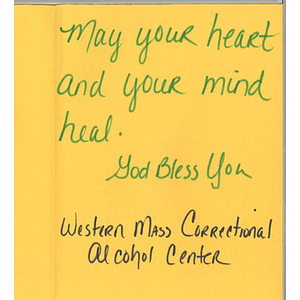 May your heart
and your mind
heal.
God Bless You
Western Mass Correctional
Alcohol Center